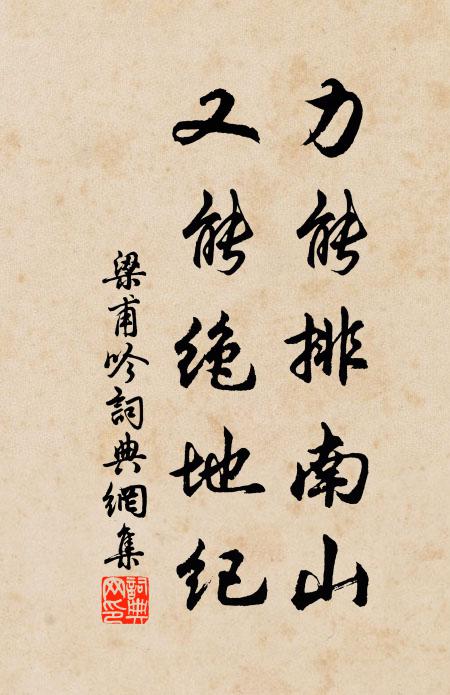 力能排南山
又能绝地纪
梁甫吟詞典網集
詞典網印